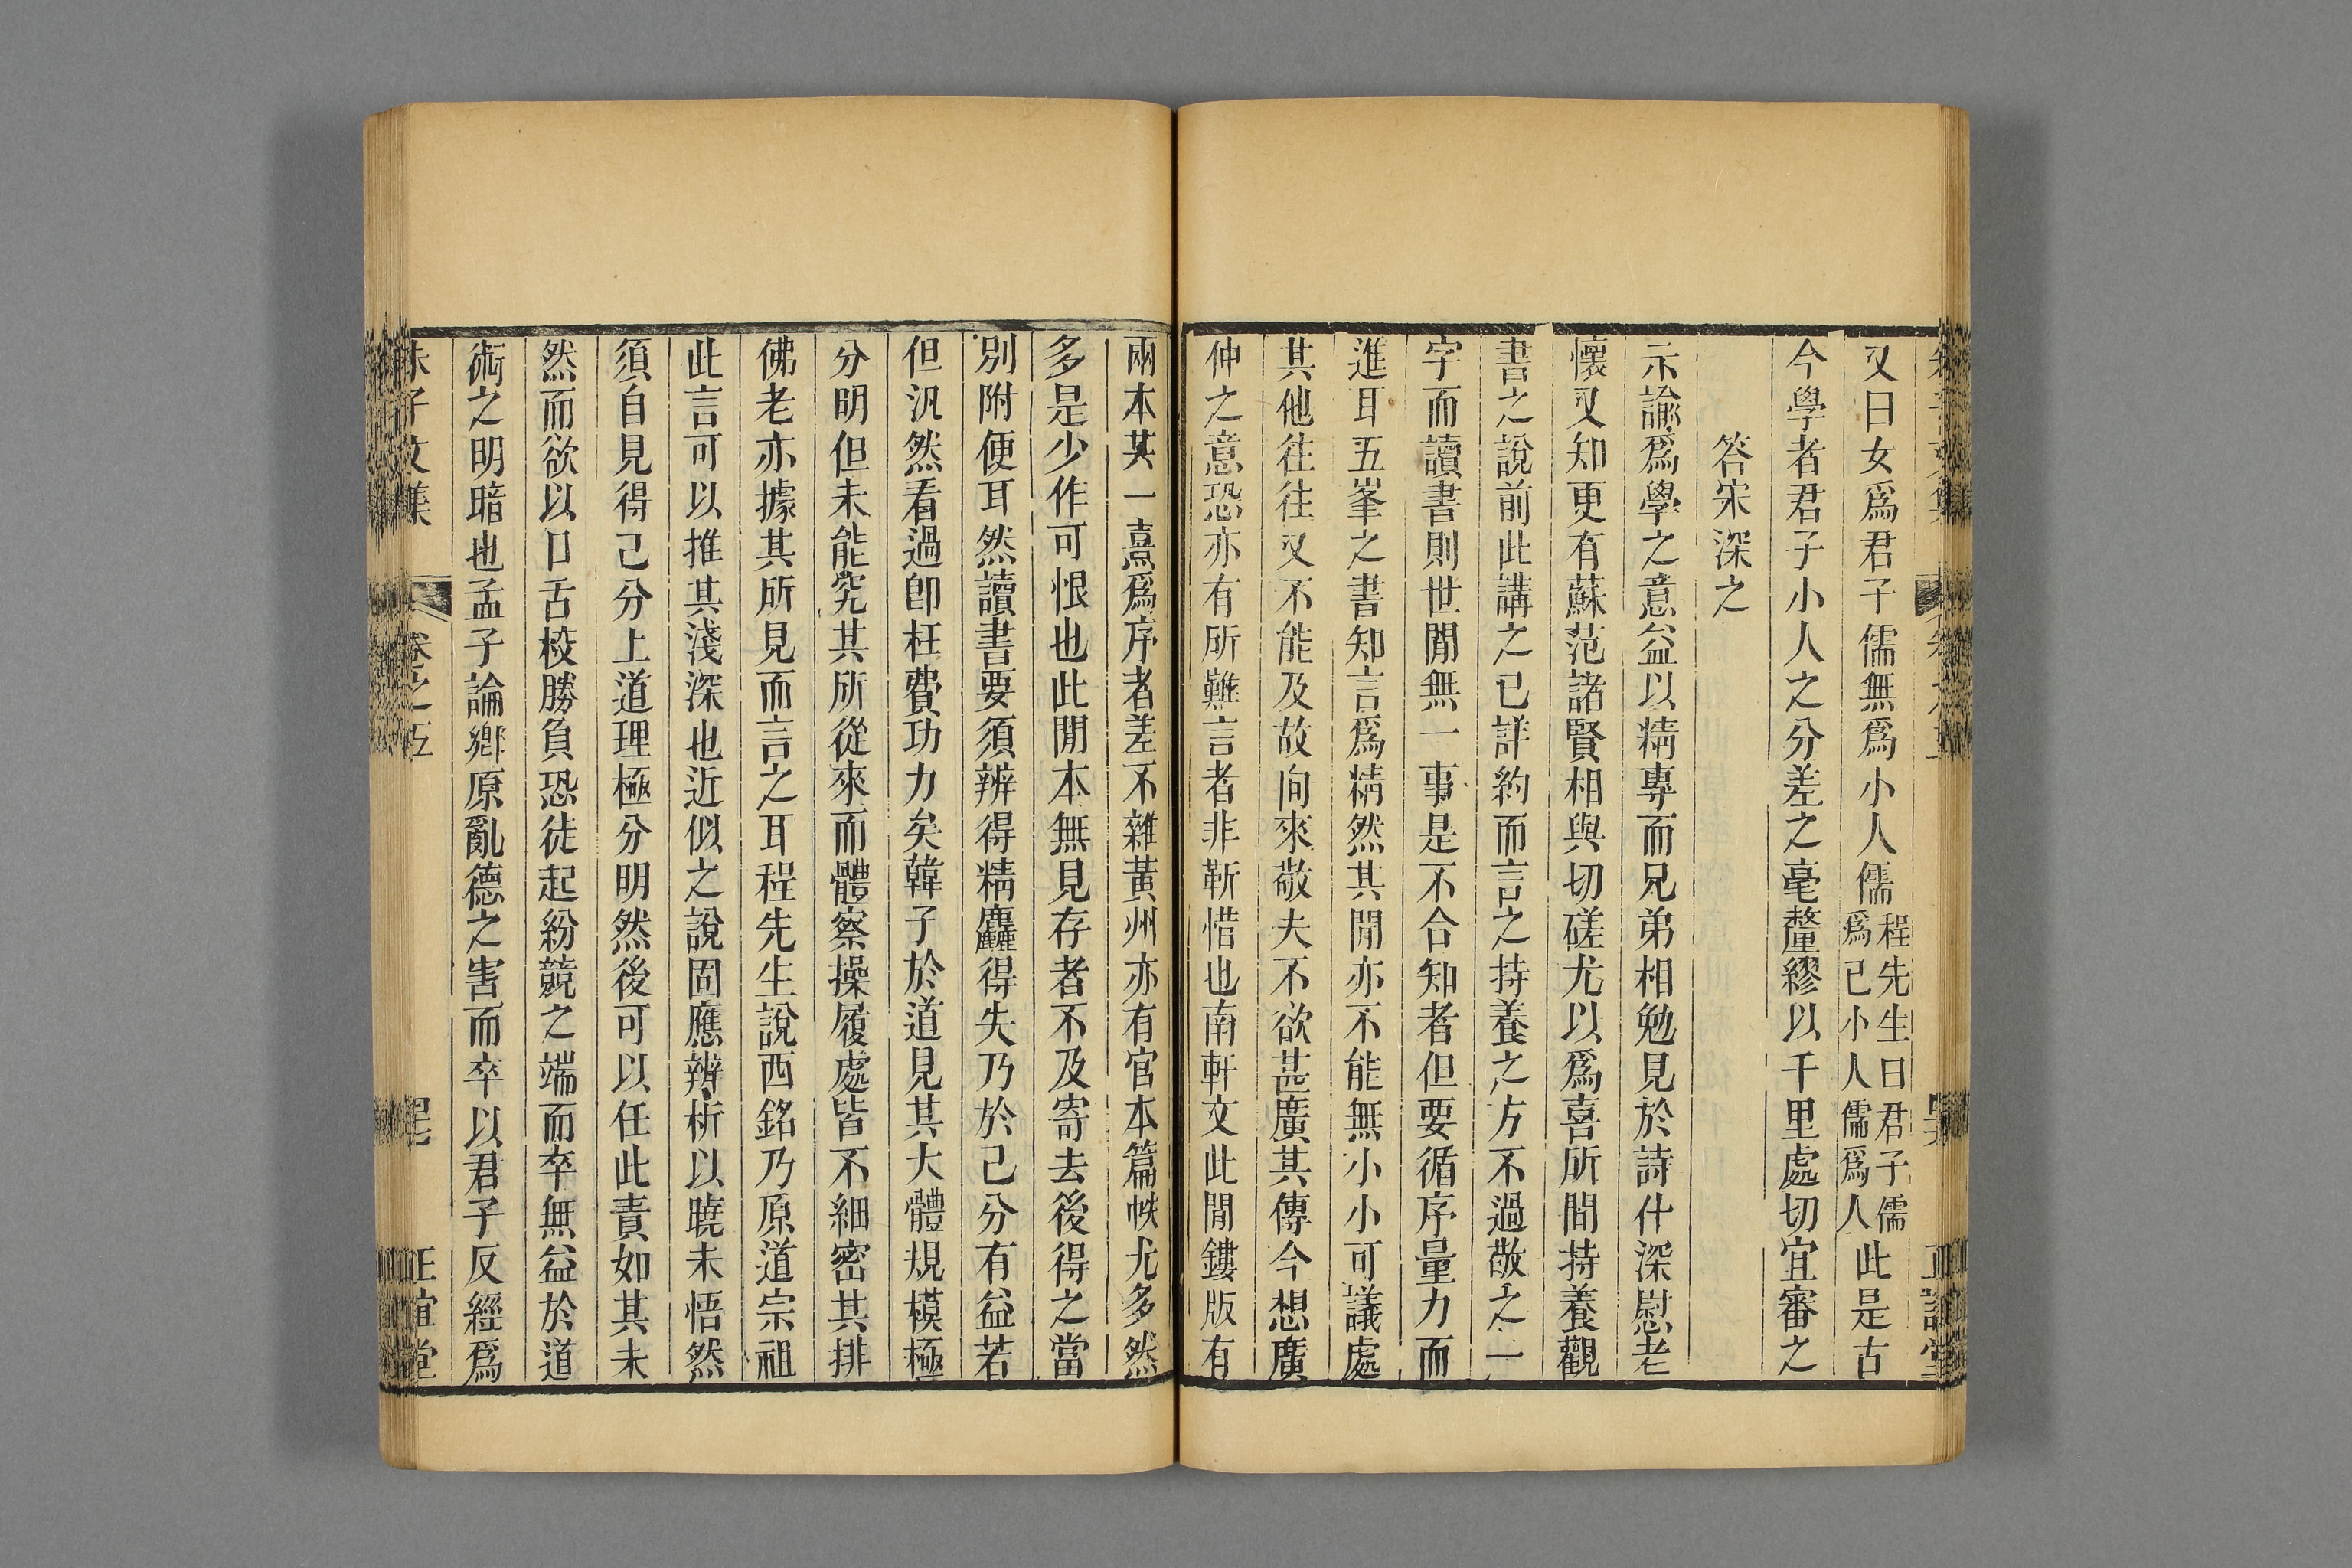 又曰女爲君子儒無爲小人儒程先生曰君子儒爲己小人儒爲人此是古
今學者君子小人之分差之毫釐繆以千里處切宜審之
答宋深之
示諭爲學之意益以精專而兄弟相勉見於詩什深慰老
懷又知更有蘇范諸賢相與切磋尤以爲喜所問持養觀
書之說前此講之已詳約而言之持養之方不過敬之一
字而讀書則世閒無一事是不合知者但要循序量力而
進耳五峯之書知言爲精然其閒亦不能無小小可議處
其他往往又不能及故向來敬夫不欲甚廣其傳今想廣
仲之意恐亦有所難言者非靳惜也南軒文此閒鏤版有
兩本其一熹爲序者差不雜黃州亦有官本篇帙尤多然
多是少作可恨也此閒本無見存者不及寄去後得之當
別附便耳然讀書要須辨得精麤得失乃於己分有益若
但汎然看過卽枉費功力矣韓子於道見其大體規模極
分明但未能究其所從來而體察操履處皆不細密其排
佛老亦據其所見而言之耳程先生說西銘乃原道宗祖
此言可以推其淺深也近似之說固應辨析以曉未悟然
須自見得己分上道理極分明然後可以任此責如其未
然而欲以口舌校勝負恐徒起紛競之端而卒無益於道
術之明暗也孟子論鄉原亂德之害而卒以君子反經爲
朱子文集 卷之五 正誼堂